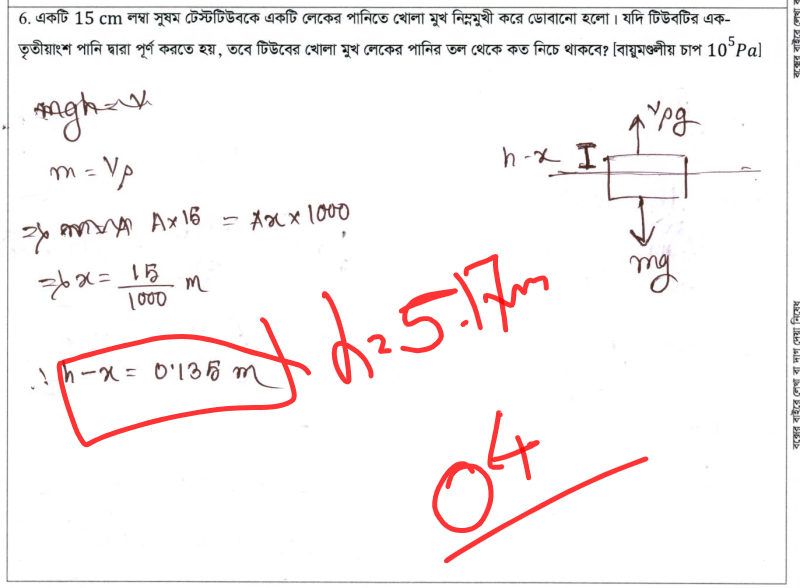 6. একটি 15 cm লম্বা সুষম টেস্টটিউবকে একটি লেকের পানিতে খোলা মুখ নিম্নমুখী করে ডোবানো হলো। যদি টিউবটির এক-
তৃতীয়াংশ পানি দ্বারা পূর্ণ করতে হয়, তবে টিউবের খোলা মুখ লেকের পানির তল থেকে কত নিচে থাকবে? [বায়ুমণ্ডলীয় চাপ 10⁵Pa]
m = Vρ
⇒ A×15 = Ax×1000
⇒ x = 15/1000 m
∴ h-x = 0.135 m
h-x
Vρg
mg
h=5.17m
04
বক্সের বাইরে লেখা বা দাগ দেয়া নিষেধ